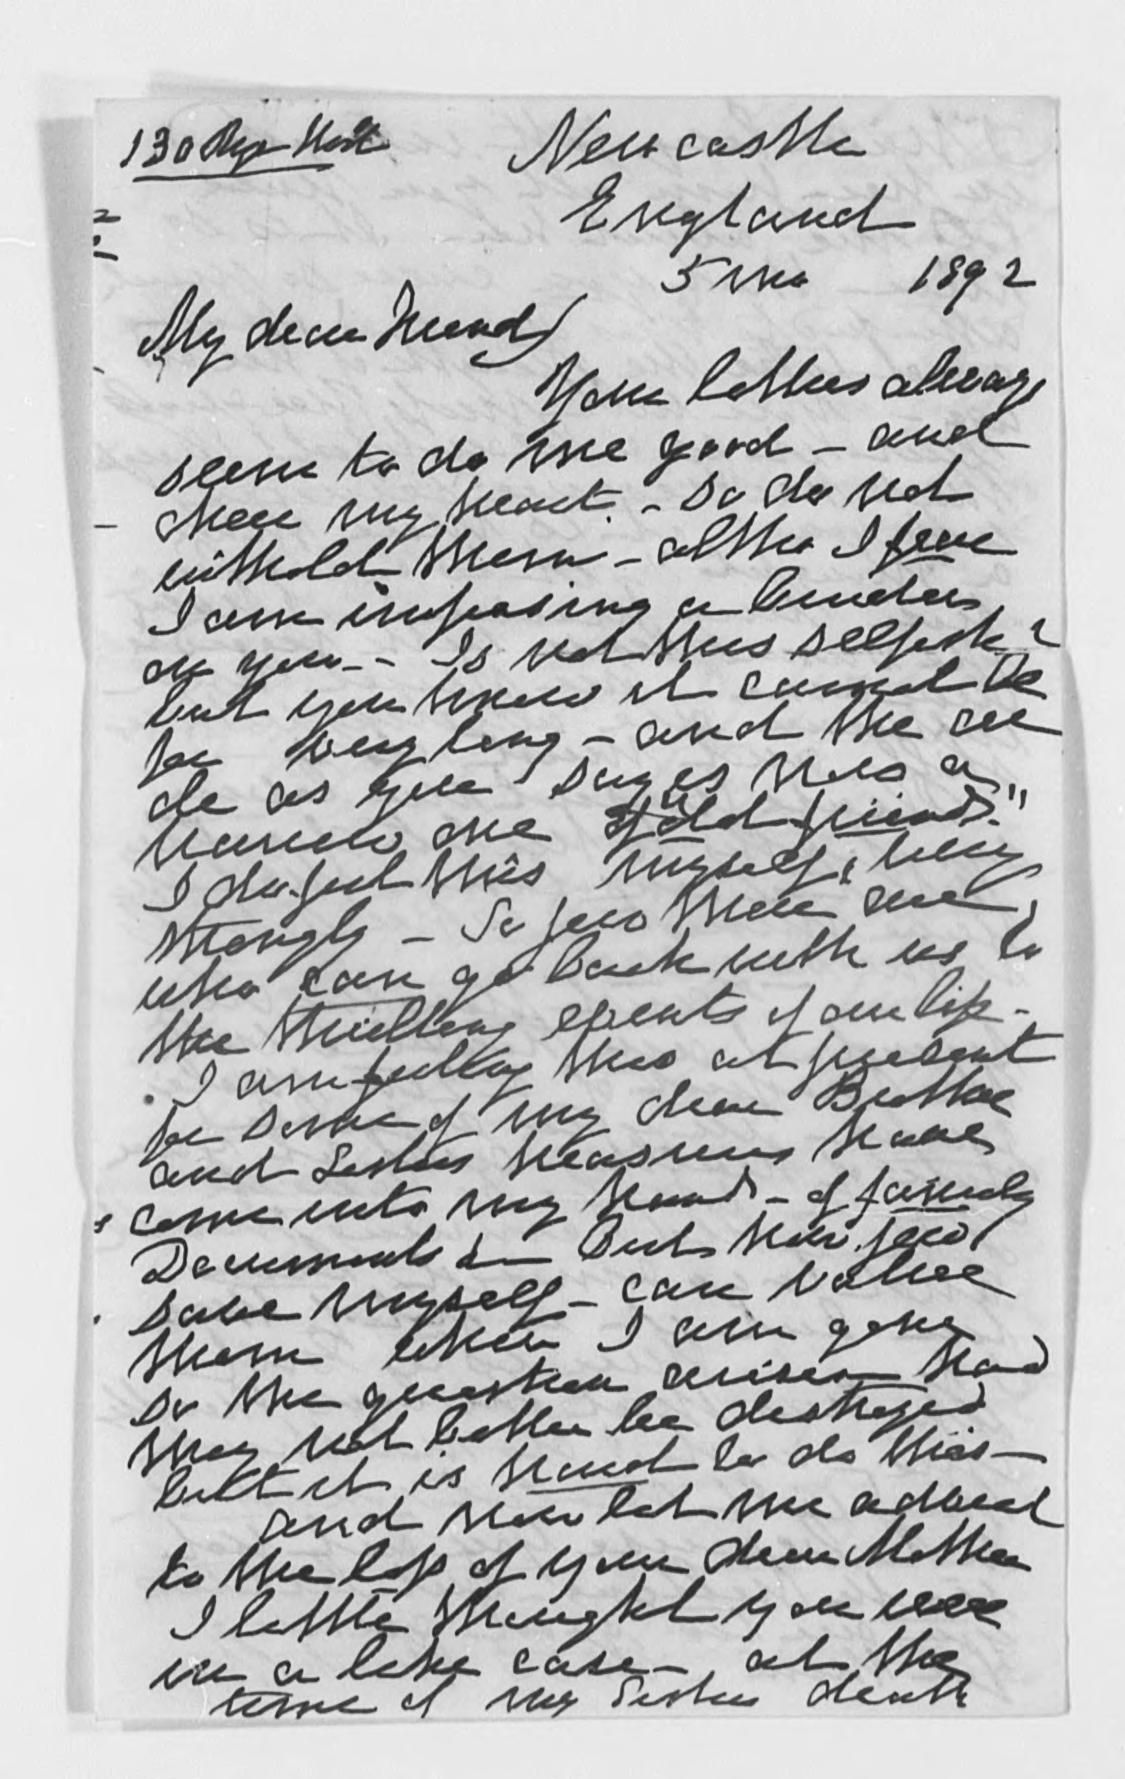 130 Rye Hill
Newcastle
England
5 mo 1892
My dear Friend
Your letters always
seem to do me good – and
cheer my heart. – So do not
withold them – altho I fear
I am imposing a burden
on you – Is not this selfish?
but you know it cannot be
for very long – and the cir
cle as you say is now a
narrow one of "old friends."
I do feel this myself, very
strongly – So few there are,
who can go back with us to
the thrilling events of our life –
I am feeling this at present
for some of my dear Brother
and Sisters treasures have
come into my hands – of family
Documents &c But how few
save myself – can value
them when I am gone
So the question arises – had
they not better be destroyed
but it is hard to do this –
and now let me advert
to the loss of your dear Mother
I little thought you were
in a like case – at the
time of my Sisters death